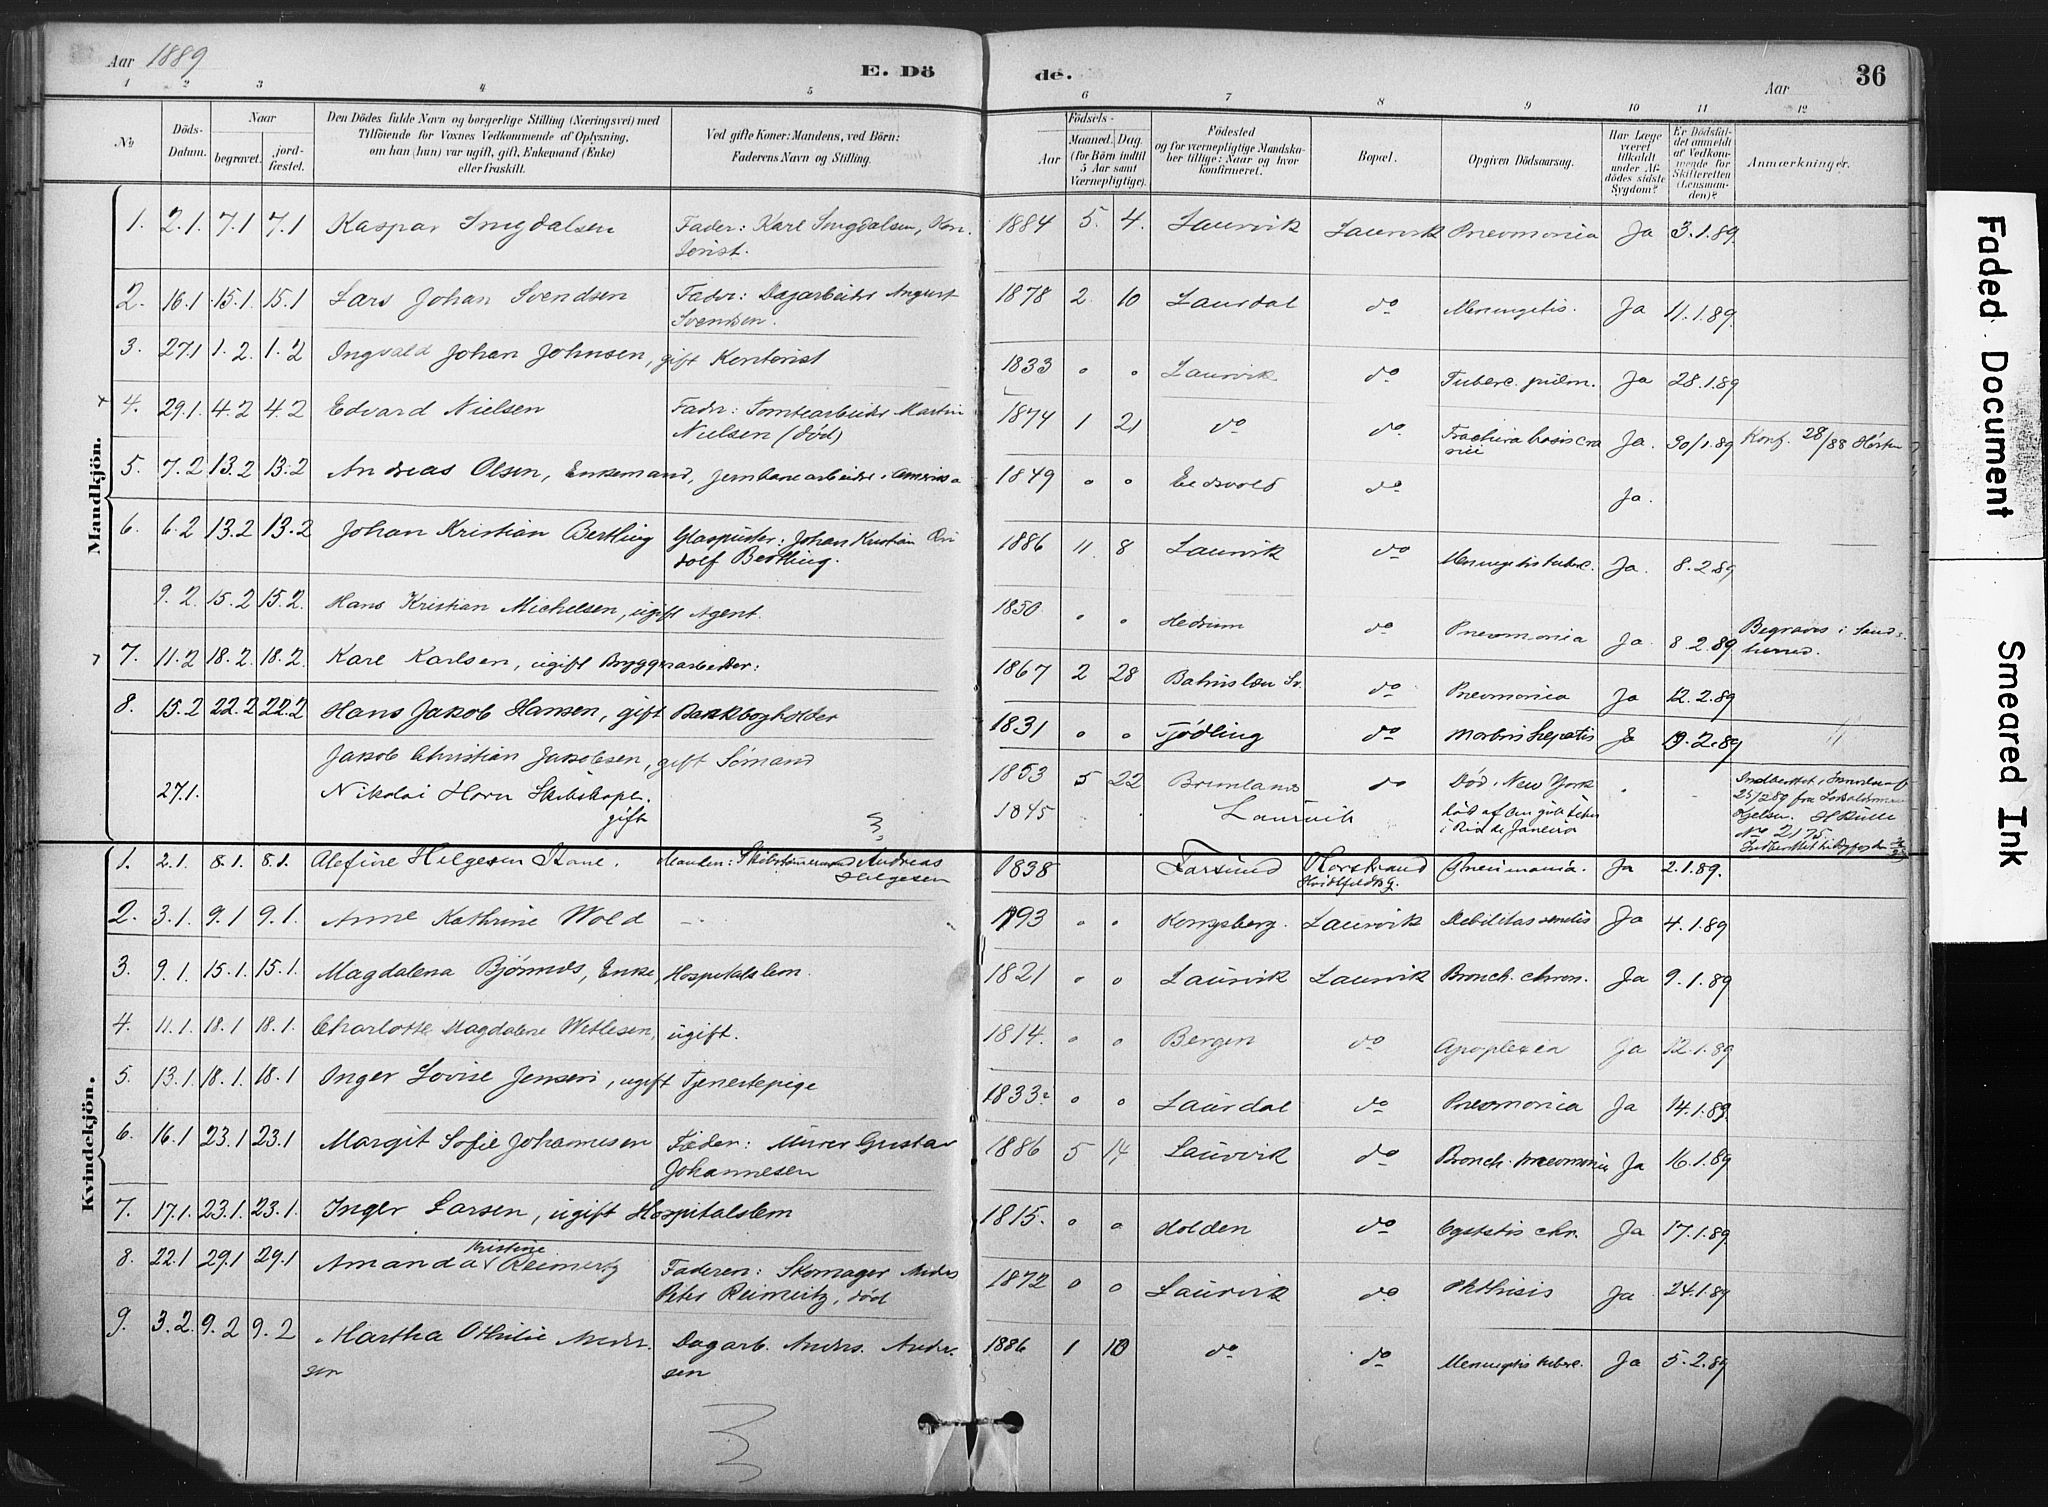 Aar 1889
E. Döde.
Aar
36
1 2 3 4 5 6 7 8 9 10 11 12
No
Döds-Datum.
Naar
begravet.
jordfæstet.
Den Dödes fulde Navn og borgerlige Stilling (Næringsvei) med Tilföiende for Voxnes Vedkommende af Oplysning, om han (hun) var ugift, gift, Enkemand (Enke) eller fraskilt.
Ved gifte Koner: Mandens, ved Börn: Faderens Navn og Stilling.
Födsels-
Aar
Maaned. Dag.
(for Börn indtil 5 Aar samt Værnepligtige).
Födested
og for værnepligtige Mandskaber tillige: Naar og hvor konfirmeret.
Bopæl.
Opgiven Dödsaarsag.
Har Læge været tilkaldt under Afdödes sidste Sygdom?
Er Dödsfaldet anmeldt af Vedkommende for Skifteretten (Lensmanden)?
Anmærkninger.
Mandkjön.
1. 2.1. 7.1 7.1 Kaspar Smgdalsen Fader: Karl Smgdalsen, Kontorist. 1884 5. 4. Laurvik Laurvik Pneomonia Ja 3.1.89.
2. 16.1. 15.1. 15.1 Lars Johan Svendsen Fader: Dagarbeider August Svendsen. 1878 2. 10 Laurdal do Meningitis. Ja 11.1.89.
3. 27.1 1.2. 1.2 Ingvald Johan Johnsen, gift Kontorist 1833 " " Laurvik do Tuberc. pulm. Ja 28.1.89
4. 29.1. 4.2 4.2 Edvard Nielsen Fader: Tomtearbeider Martin Nielsen (död) 1874 1 21 do do Fractura basis cranii Ja. 30/1.89 Konf. 28/88
5. 7.2 13.2 13.2 Andreas Olsen, Enkemand, Jernbanearbeider i Amerika 1849 " " Eidsvold do Ja.
6. 6.2 13.2 13.2 Johan Kristian Bertling Glaspuster: Johan Kristian Bertling. 1886 11. 8 Laurvik do Meningitis tuberc. Ja. 8.2.89
9.2 15.2 15.2. Hans Kristian Michelsen, ugift Agent. 1850 " " Hedrum do Pneomonia Ja 8.2.89 Begraves i Sandeherred.
7. 11.2 18.2. 18.2. Karl Karlsen, ugift Bryggearbeider. 1867 2 28 do Pneomonia Ja 12.2.89
8. 15.2 22.2 22.2 Hans Jakob Hansen, gift Bankbogholder 1831 " " Tjödling do Morbus hepatis Ja 19.2.89 "
Jakob Christian Jakobsen, gift Sömand 1853 5 22 Brunlanes do Död i New York
27.1. Nikolai Horn Skibskapt. gift 1845 Laurvik död af den gule feber i Rio de Janeiro No 2175
Kvindekjön.
1. 2.1. 8.1. 8.1. Alefine Helgesen Stane. Manden: Skibstömmermand Andreas Helgesen 1838 Farsund Pneumonia. Ja 2.1.89.
2. 3.1. 9.1 9.1. Anne Kathrine Wold — 1793 " " Kongsberg. Laurvik Debilitas senilis Ja 4.1.89
3. 9.1. 15.1. 15.1. Magdalena Bjönnes, Enke, Hospitalslem. 1821 " " Laurvik Laurvik Bronch. chron. Ja 9.1.89
4. 11.1. 18.1 18.1. Charlotte Magdalene Wetlesen, ugift. 1814. " " Bergen do Apoplexia Ja 12.1.89
5. 13.1. 18.1. 18.1 Inger Lovise Jensen, ugift Tjenestepige 1833. " " Laurdal do Pneomonia Ja 14.1.89.
6. 16.1 23.1 23.1 Margit Sofie Johannesen Fader: Murer Gustav Johannesen 1886 5 14 Laurvik do Bronch. pneomonia Ja 16.1.89
7. 17.1. 23.1. 23.1. Inger Larsen, ugift Hospitalslem 1815. " " Holden do Cystitis chr. Ja 17.1.89.
8. 22.1 29.1 29.1 Amanda Kristine Reimertz Faderen: Skomager Anders Peter Reimertz, död 1872 " " Laurvik do Phthisis Ja 24.1.89
9. 3.2. 9.2 9.2 Martha Othilie Andersen Dagarb. Anders Andersen 1886 1 10 do do Meningitis tuberc. Ja 5.2.89
Faded Document
Smeared Ink